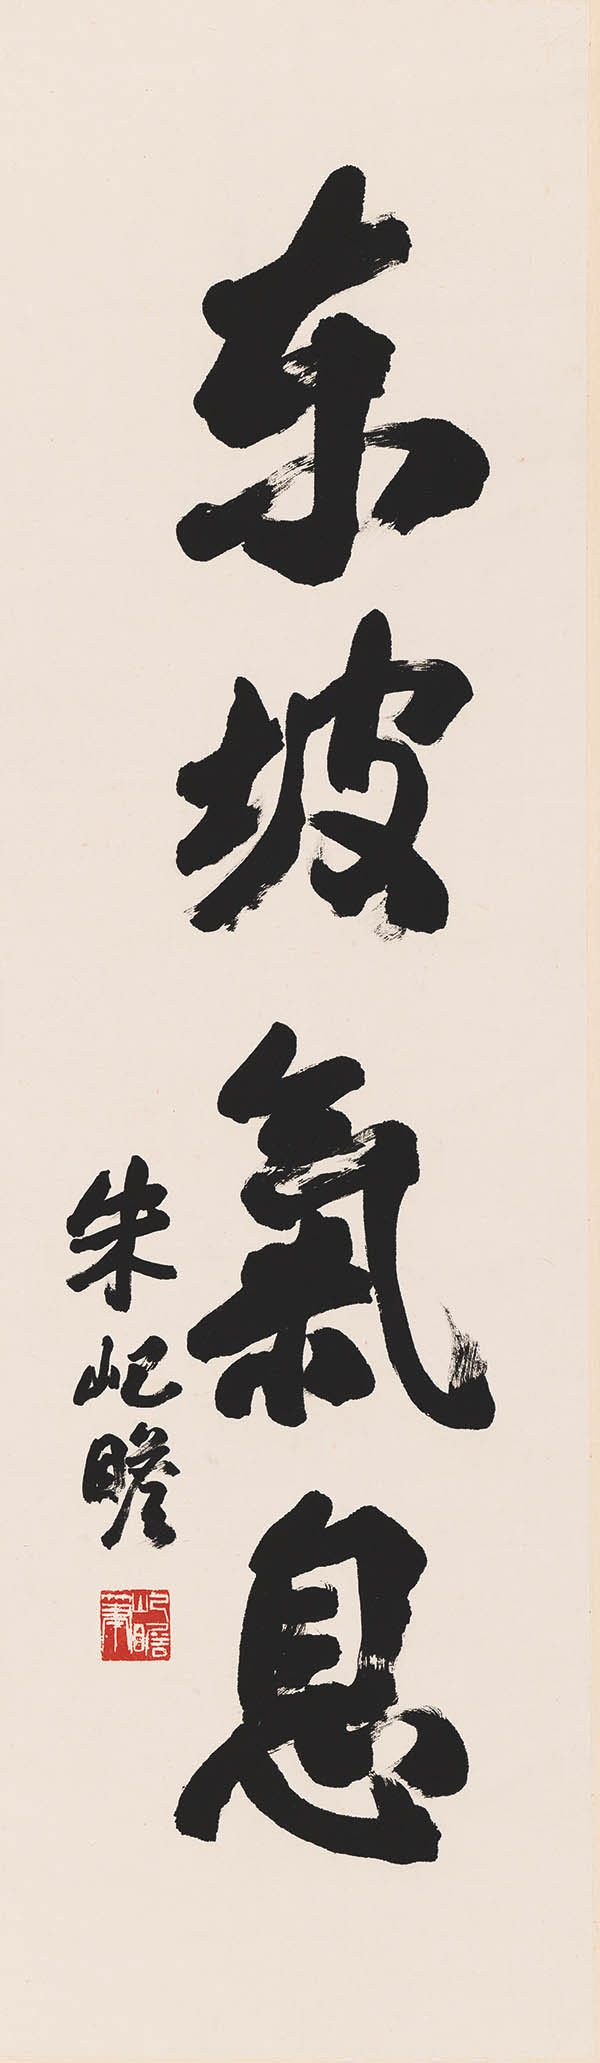 东坡氣息
朱屺瞻
屺瞻